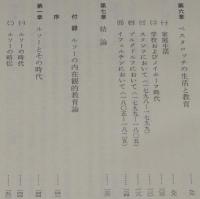 第六章 ペスタロッチの生活と教育
㈠ 家庭生活
㈡ 学校およびノイホーフ時代
㈢ スタンツにおいて(一七九八―一七九九)
㈣ ブルグドルフにおいて(一七九九―一八〇五)
㈤ イフェルテンにおいて(一八〇五―一八二五)
第七章 結論
付録 ルソーの内在観的教育論
序
第一章 ルソーとその時代
㈠ ルソーの時代
㈡ ルソーの略伝